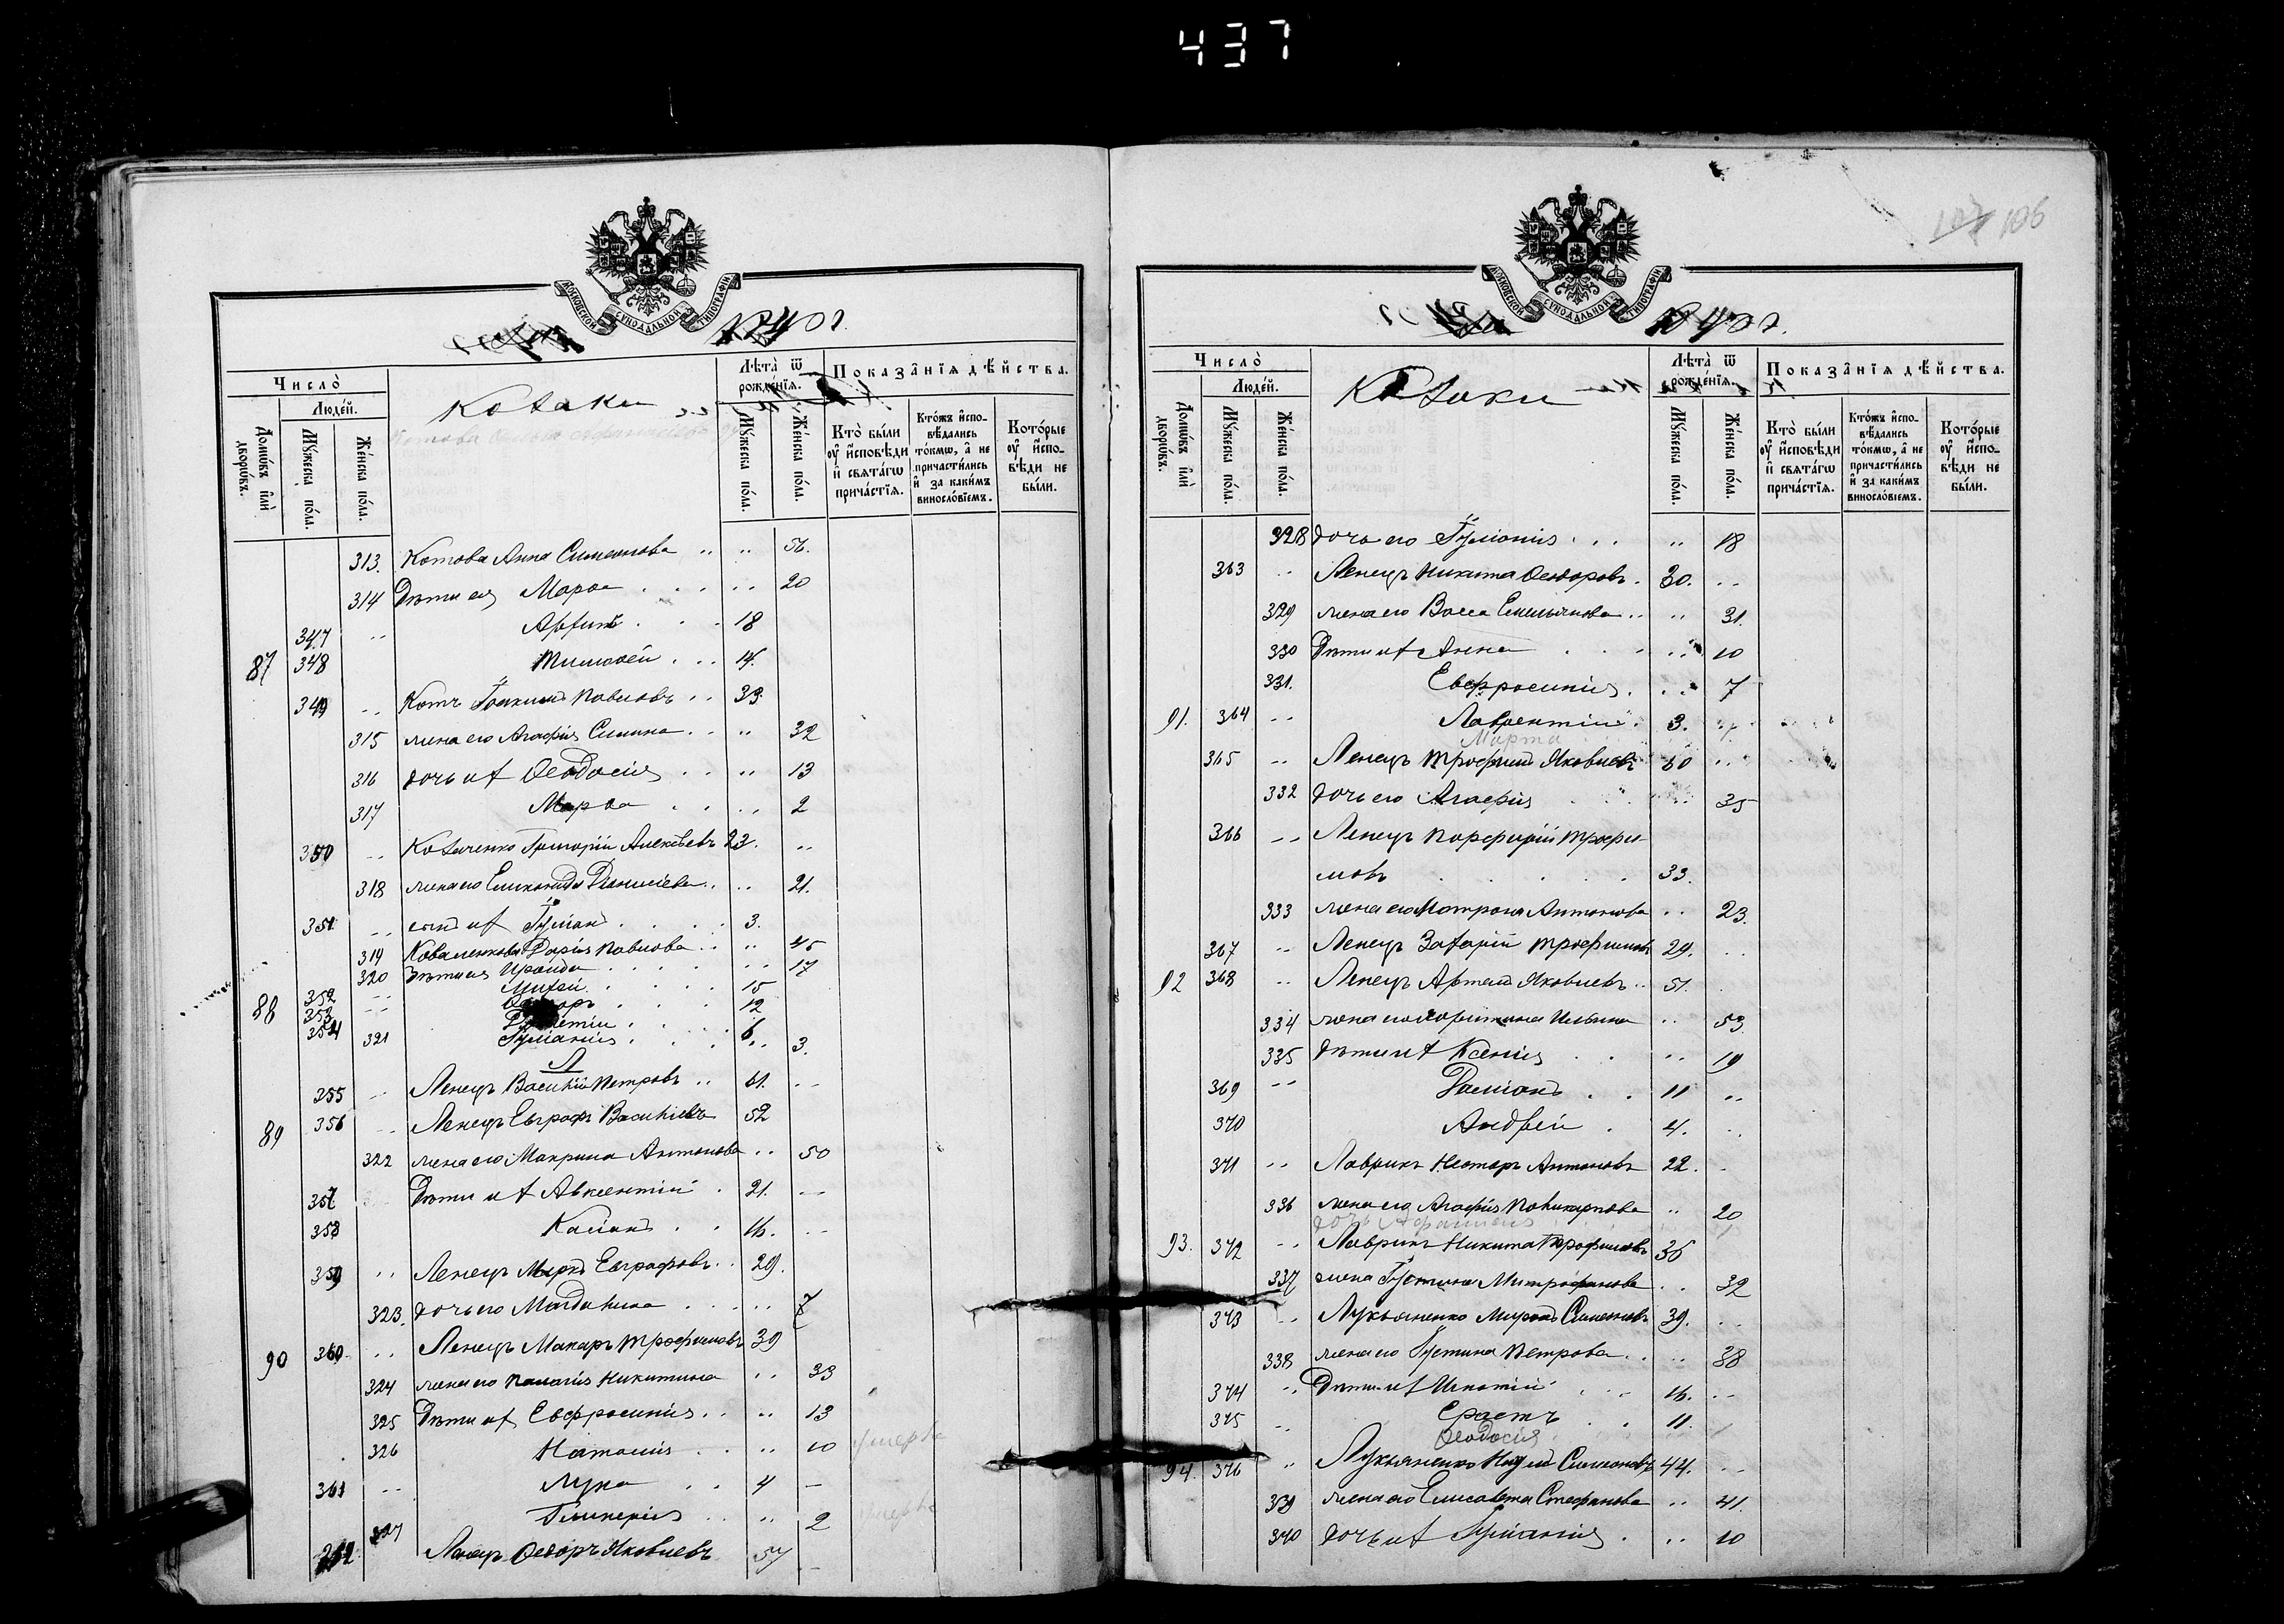 437
107 106
МОСКОВСКОЙ СУНОДАЛЬНОЙ ТИПОГРАФІИ
Число̀
Люде́й.
Домѡ́въ и҆лѝ дворѡ́въ.
Мꙋ́жеска по́ла.
Же́нска по́ла.
Козаки
Лѣта̀ ѿ рожде́нїѧ.
Мꙋ́жеска по́ла.
Же́нска по́ла.
Показа̑нїѧ дѣ́йства.
Кто̀ бы́ли
ᲂу҆ и҆сповѣ́ди
и҆ свѧта́гѡ
прича́стїѧ.
Кто́жъ и҆спо-
вѣ́дались
то́кмѡ, а҆ не
причасти́лись
и҆ за каки́мъ
виносло́вїемъ.
Кото́рые
ᲂу҆ и҆спо-
вѣ́ди не
бы́ли.
313. Котова Анна Симеонова .. .. 56.
314 Дѣти ея Марѳа .. 20
347 .. 18
87 348 Тимоѳей . .. 14.
349 .. Котъ Іоакимъ Павловъ .. 33
315 жена его Агафія Силина .. .. 32
316 дочь их Ѳеодосія .. .. 13
317 Марѳа .. 2
350 .. Козаченко Григорій Алексѣевъ 23. ..
318 жена его Діонисіева .. .. 21.
351. .. сынъ их Іуліанъ 3.
319 Коваленкова Дарія Павлова .. .. 45
320 Дѣти ея Ираида .. 17
352 .. 15
88 353 .. 12
354 6
321 Іуліанія .. 3.
Л
355 .. Ленецъ Василій Петровъ .. 61. ..
89 356 .. Ленецъ Евграфъ Васильевъ 52
322 жена его Макрина Антонова .. 50
357 Дѣти их Авксентій . 21. ..
358 Касіанъ . . 16. ..
359 .. Ленецъ Маркъ Евграфовъ .. 29.
323. дочь его Магдалина .. 7
90 360 .. Ленецъ Макаръ Трофимовъ 39
324 жена его Пелагія Никитина .. 33
325 Дѣти их Евфросинія .. .. 13
326 Наталія .. .. 10 умерла
361 .. Лука .. 4 –
327 Гликерія .. .. 2 умерла
362 Ленецъ Ѳеодоръ Яковлевъ 57
МОСКОВСКОЙ СУНОДАЛЬНОЙ ТИПОГРАФІИ
Число̀
Люде́й.
Домѡ́въ и҆лѝ дворѡ́въ.
Мꙋ́жеска по́ла.
Же́нска по́ла.
Козаки
Лѣта̀ ѿ рожде́нїѧ.
Мꙋ́жеска по́ла.
Же́нска по́ла.
Показа̑нїѧ дѣ́йства.
Кто̀ бы́ли
ᲂу҆ и҆сповѣ́ди
и҆ свѧта́гѡ
прича́стїѧ.
Кто́жъ и҆спо-
вѣ́дались
то́кмѡ, а҆ не
причасти́лись
и҆ за каки́мъ
виносло́вїемъ.
Кото́рые
ᲂу҆ и҆спо-
вѣ́ди не
бы́ли.
328 дочь его Іуліанія .. 18
363 .. Ленецъ Никита Ѳеодоровъ . 30. ..
329 жена его Васса Емельянова .. .. 31.
330 Дѣти их Анна .. 10
331. Евфросинія .. 7
91. 364 .. Лаврентій . 3.
Марта
365 .. Ленецъ Трофимъ Яковлевъ 60 ..
332 дочь его Агафія .. 35
366 .. Ленецъ Порфирій Трофи-
мовъ 33.
333 жена его Матрона Антонова .. 23.
367 .. Ленецъ Захарій Трофимовъ 29. ..
92 368 .. Ленецъ Артемъ Яковлевъ .. 51.
334 жена его Харитина Ильина .. 53.
335 дѣти их Ксенія .. 19
369 .. Даміанъ . . 11 ..
370 Андрей . 4. ..
371 .. Лаврикъ Несторъ Антоновъ 22. .
336 жена его Агафія Поликарпова .. 20
дочь
93. 372 .. Лаврикъ Никита Трофимовъ 36
337 жена Іустина Митрофанова .. 32
373 .. Лукьяненко Миронъ Симеоновъ 39. ..
338 жена его Іустина Петрова .. 38
374 .. Дѣти их Игнатій 16. ..
375 .. Ерастъ . . 11.
Ѳеодосія
94. 376 .. Лукьяненко Наумъ Симеоновъ 44. ..
339 жена его Елисавета Стефанова .. 41.
340 дочь их Іуліанія . .. 10